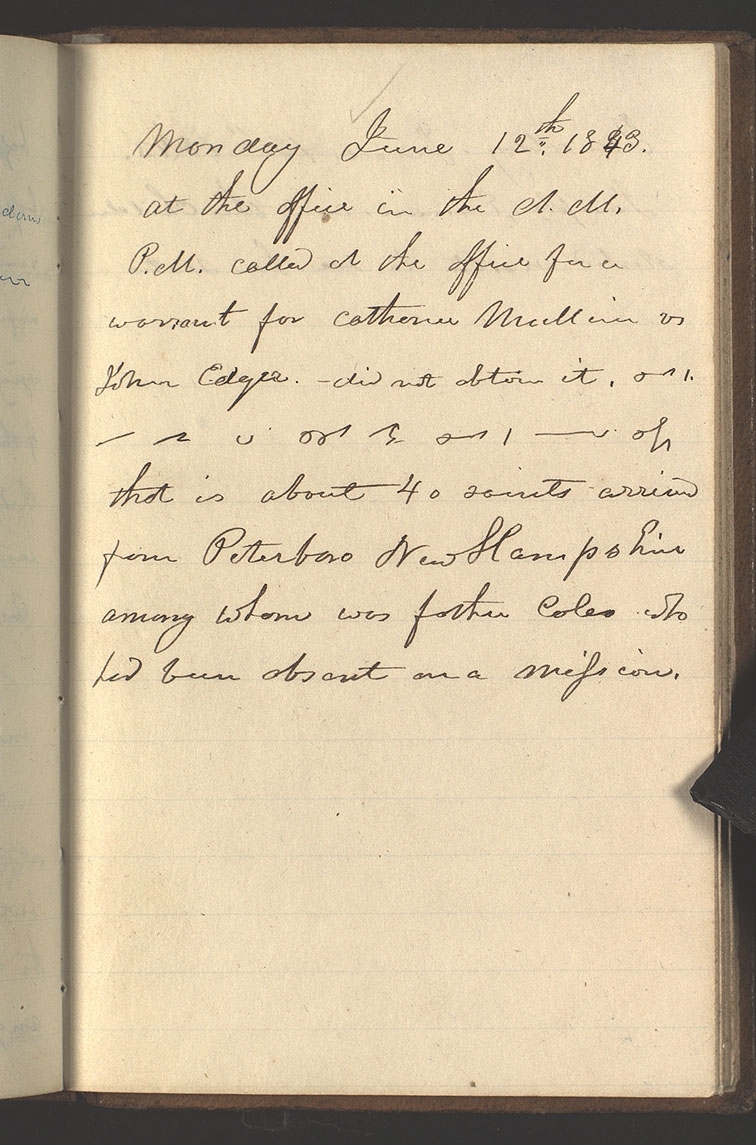 Monday June 12th. 1843.
at the office in the A. M.
P.M. called at the office for a
warrant for Catherine Mullin vs
John Edger. - did not obtain it.
that is about 40 saints arrived
from Peterboro New Hampshire
among whom was father Coles who
had been absent on a mission.